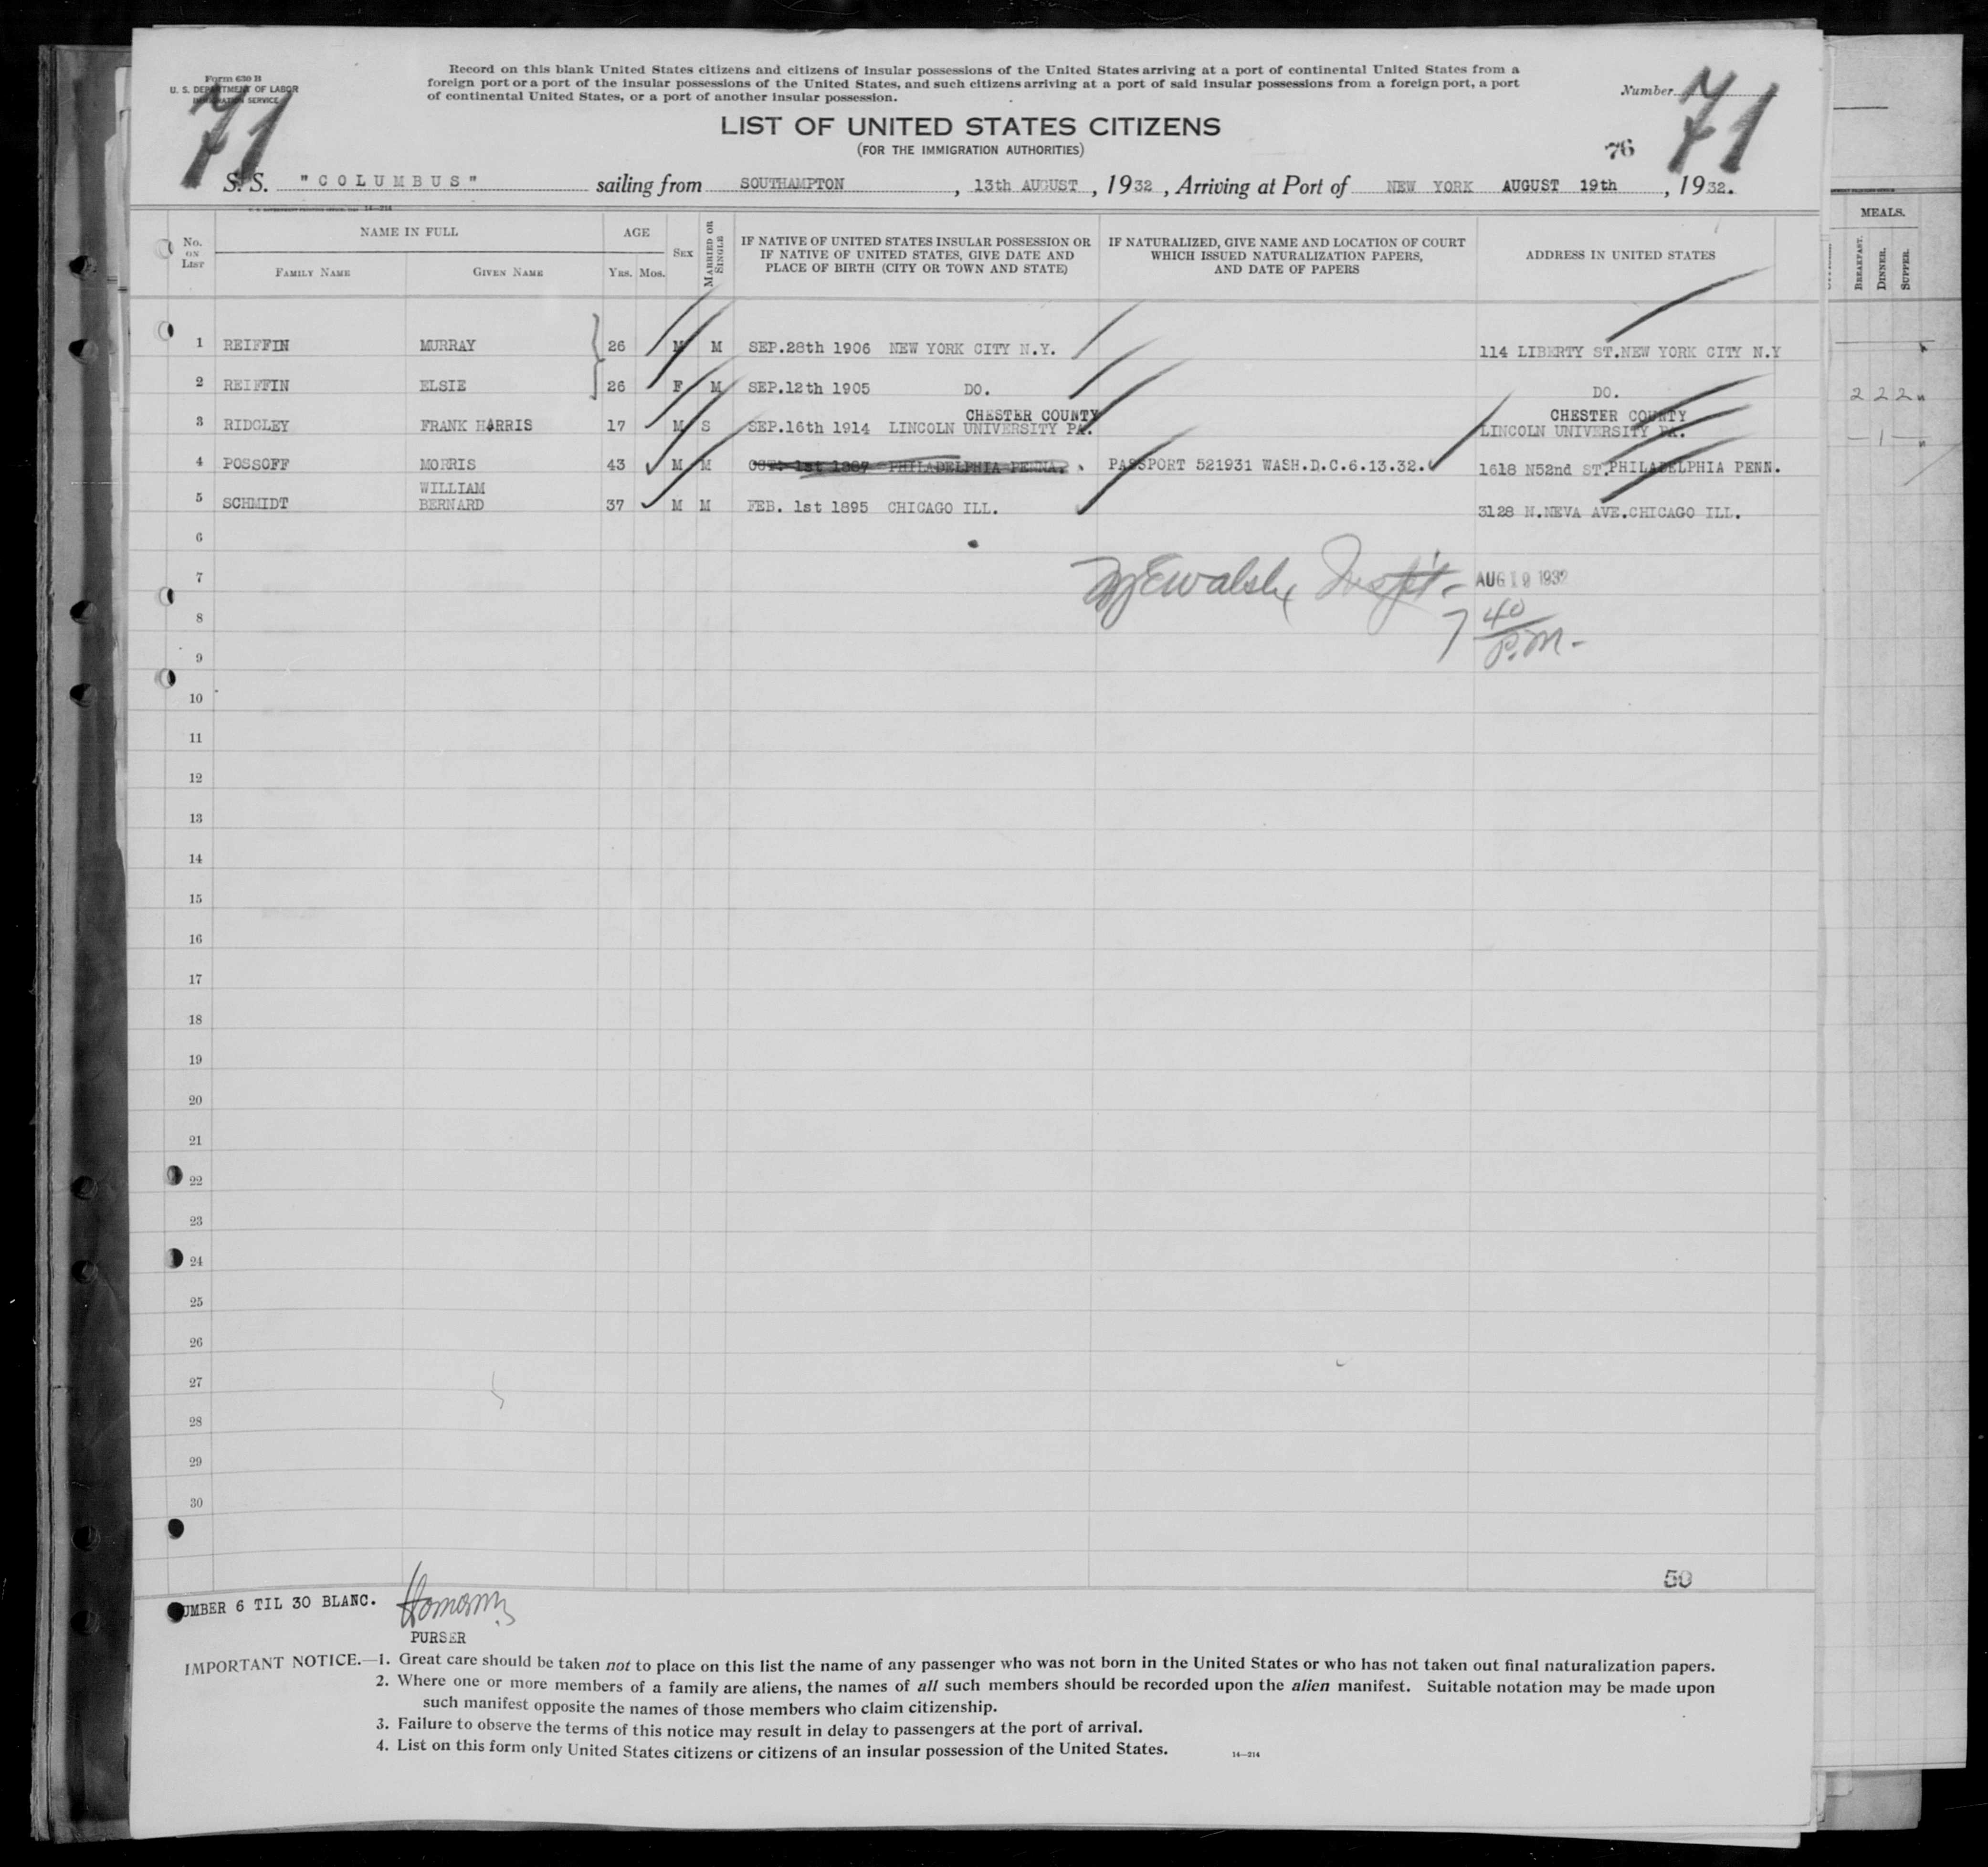 Form 630 B
U. S. DEPARTMENT OF LABOR
IMMIGRATION SERVICE
71
Record on this blank United States citizens and citizens of insular possessions of the United States arriving at a port of continental United States from a
foreign port or a port of the insular possessions of the United States, and such citizens arriving at a port of said insular possessions from a foreign port, a port
of continental United States, or a port of another insular possession.
Number
71
LIST OF UNITED STATES CITIZENS
(FOR THE IMMIGRATION AUTHORITIES)
76
S. S. "COLUMBUS" sailing from SOUTHAMPTON, 13th AUGUST, 1932, Arriving at Port of NEW YORK AUGUST 19th, 1932.
14-214
No. ON LIST
NAME IN FULL
FAMILY NAME GIVEN NAME
AGE
YRS. MOS.
SEX
MARRIED OR SINGLE
IF NATIVE OF UNITED STATES INSULAR POSSESSION OR
IF NATIVE OF UNITED STATES, GIVE DATE AND
PLACE OF BIRTH (CITY OR TOWN AND STATE)
IF NATURALIZED, GIVE NAME AND LOCATION OF COURT
WHICH ISSUED NATURALIZATION PAPERS,
AND DATE OF PAPERS
ADDRESS IN UNITED STATES
MEALS.
BREAKFAST.
DINNER.
SUPPER.
1 REIFFIN MURRAY 26 M M SEP.28th 1906 NEW YORK CITY N.Y. 114 LIBERTY ST.NEW YORK CITY N.Y
2 REIFFIN ELSIE 26 F M SEP.12th 1905 DO. DO.
2 2 2
CHESTER COUNTY CHESTER COUNTY
3 RIDGLEY FRANK HARRIS 17 M S SEP.16th 1914 LINCOLN UNIVERSITY PA. LINCOLN UNIVERSITY PA.
1
4 POSSOFF MORRIS 43 M M OCT. 1st 1887 PHILADELPHIA PENNA. PASSPORT 521931 WASH.D.C.6.13.32. 1618 N52nd ST.PHILADELPHIA PENN.
WILLIAM
5 SCHMIDT BERNARD 37 M M FEB. 1st 1895 CHICAGO ILL. 3128 N.NEVA AVE.CHICAGO ILL.
6
7 Walsh AUG 19 1932
8 7 40
P.M.
9
10
11
12
13
14
15
16
17
18
19
20
21
22
23
24
25
26
27
28
29
30
50
NUMBER 6 TIL 30 BLANC.
PURSER
IMPORTANT NOTICE.—1. Great care should be taken not to place on this list the name of any passenger who was not born in the United States or who has not taken out final naturalization papers.
2. Where one or more members of a family are aliens, the names of all such members should be recorded upon the alien manifest. Suitable notation may be made upon
such manifest opposite the names of those members who claim citizenship.
3. Failure to observe the terms of this notice may result in delay to passengers at the port of arrival.
4. List on this form only United States citizens or citizens of an insular possession of the United States.
14—214